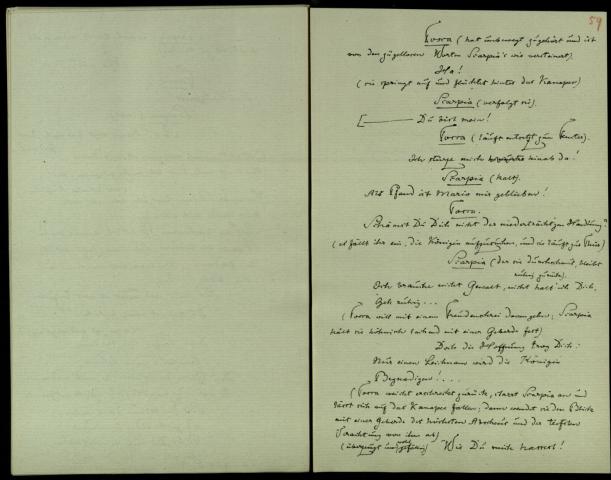 59
Tosca (hat unbewegt zugehört und ist
von den zügellosen Worten Scarpia's wie versteinert).
Ha!
(sie springt auf und flüchtet hinter das Kanapee)
Scarpia (verfolgt sie).
Du bist mein!
Tosca (läuft entsetzt zum Fenster).
Ich stürze mich hinab da!
Scarpia (kalt).
Als Pfand ist Mario mir geblieben!
Tosca.
Schämst Du Dich nicht der niederträcht'gen Handlung?
(es fällt ihr ein, die Königin aufzusuchen, und sie läuft zur Thüre)
Scarpia (der sie durchschaut, bleibt
ruhig zurück).
Ich brauche nicht Gewalt, nicht halt' ich Dich.
Geh ruhig...
(Tosca will mit einem Freudenschrei davongehen; Scarpia
hält sie höhnisch lachend mit einer Geberde fest)
Doch die Hoffnung trog Dich:
Nur einen Leichnam wird die Königin
Begnadigen!...
(Tosca weicht erschreckt zurück, starrt Scarpia an und
lässt sich auf das Kanapee fallen; dann wendet sie den Blick
mit einer Geberde des höchsten Abscheus und der tiefsten
Verachtung von ihm ab)
(überzeugt und gefällig) Wie Du mich hassest!